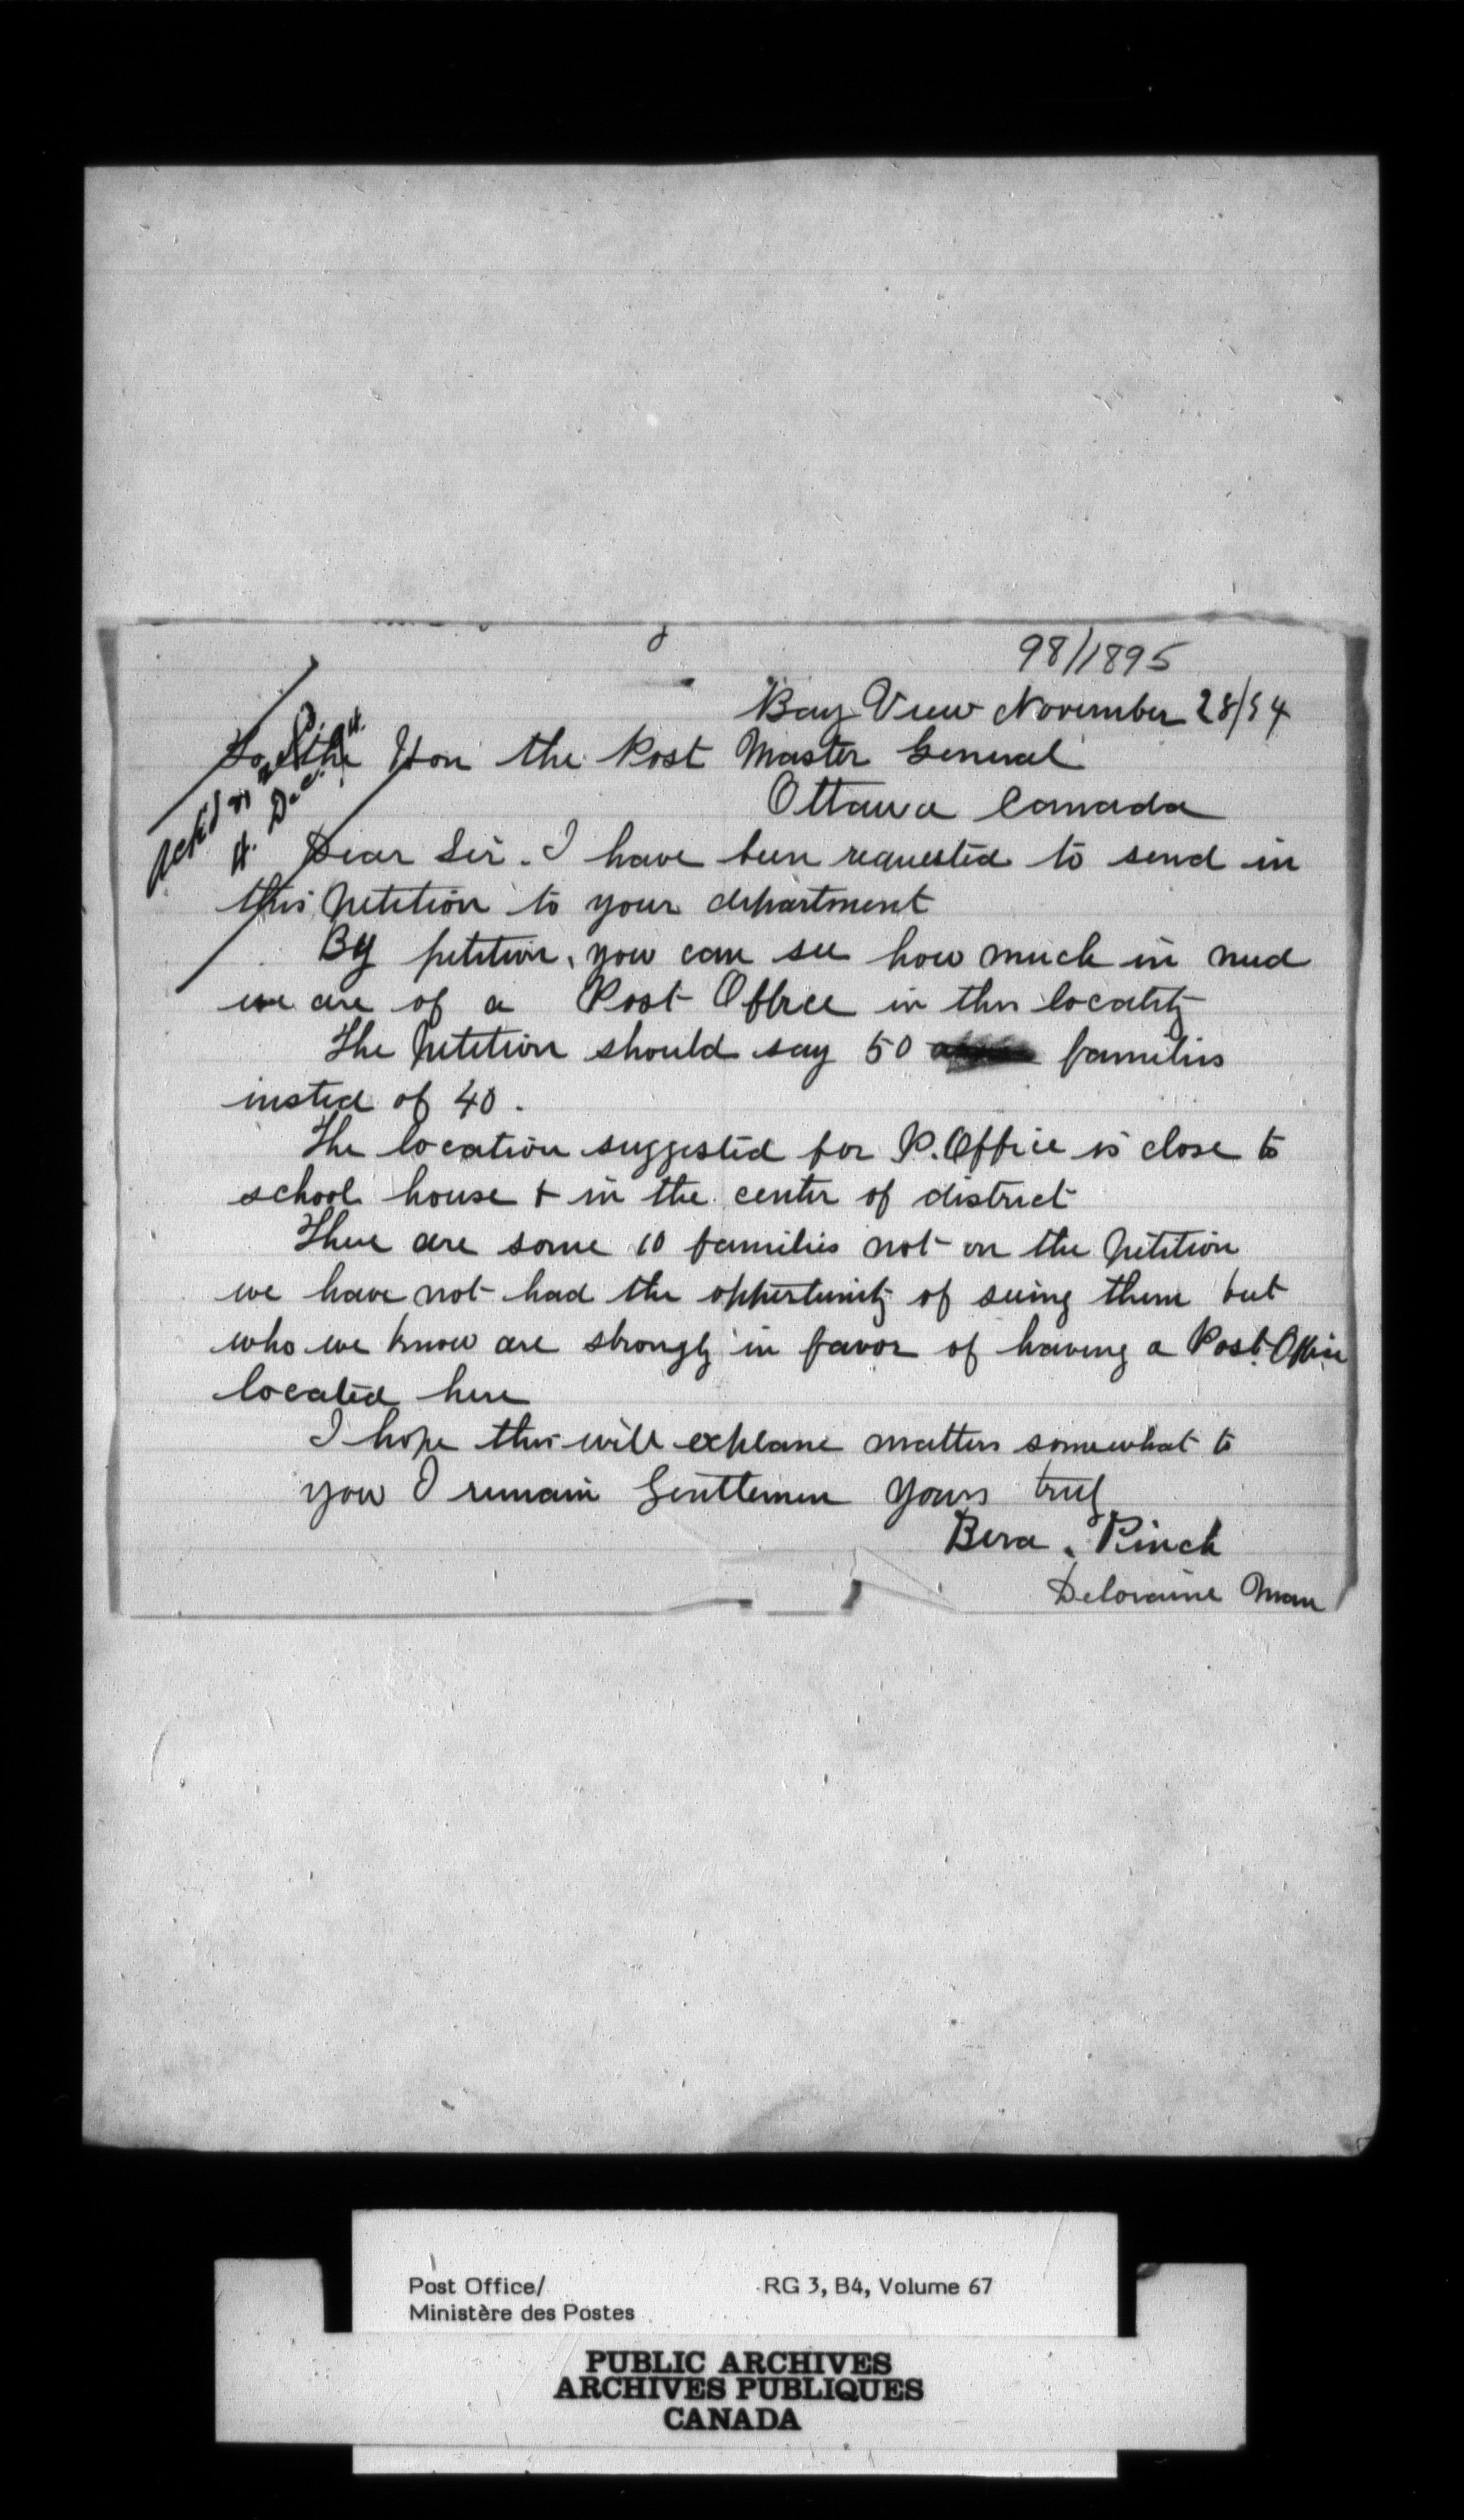 98/1895
Bay View November 28/94
To the Hon the Post Master General
Ottawa Canada
Ack'd
4. Dec.
Dear Sir. I have been requested to send in
this petition to your department
By petition, you can see how much in need
we are of a Post Office in this locality
The petition should say 50 families
insted of 40.
The location suggested for P. Office is close to
school house & in the center of district
There are some 10 families not on the petition
we have not had the oppertunity of seeing them but
who we know are strongly in favor of having a Post Office
located here
I hope this will explane matters somewhat to
you I remain Gentlemen yours truly
Pinch
Deloraine Man
Post Office/
Ministère des Postes
RG 3, B4, Volume 67
PUBLIC ARCHIVES
ARCHIVES PUBLIQUES
CANADA